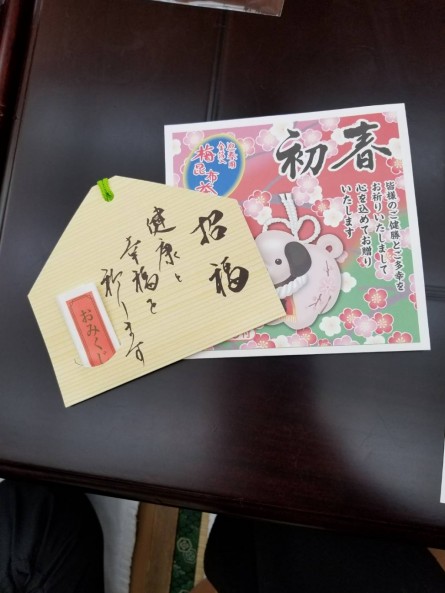 招福
健康と
幸福を
祈ります
おみくじ
初春
皆様のご健勝とご多幸を
お祈りいたしまして
心を込めてお贈り
いたします
梅
昆布茶